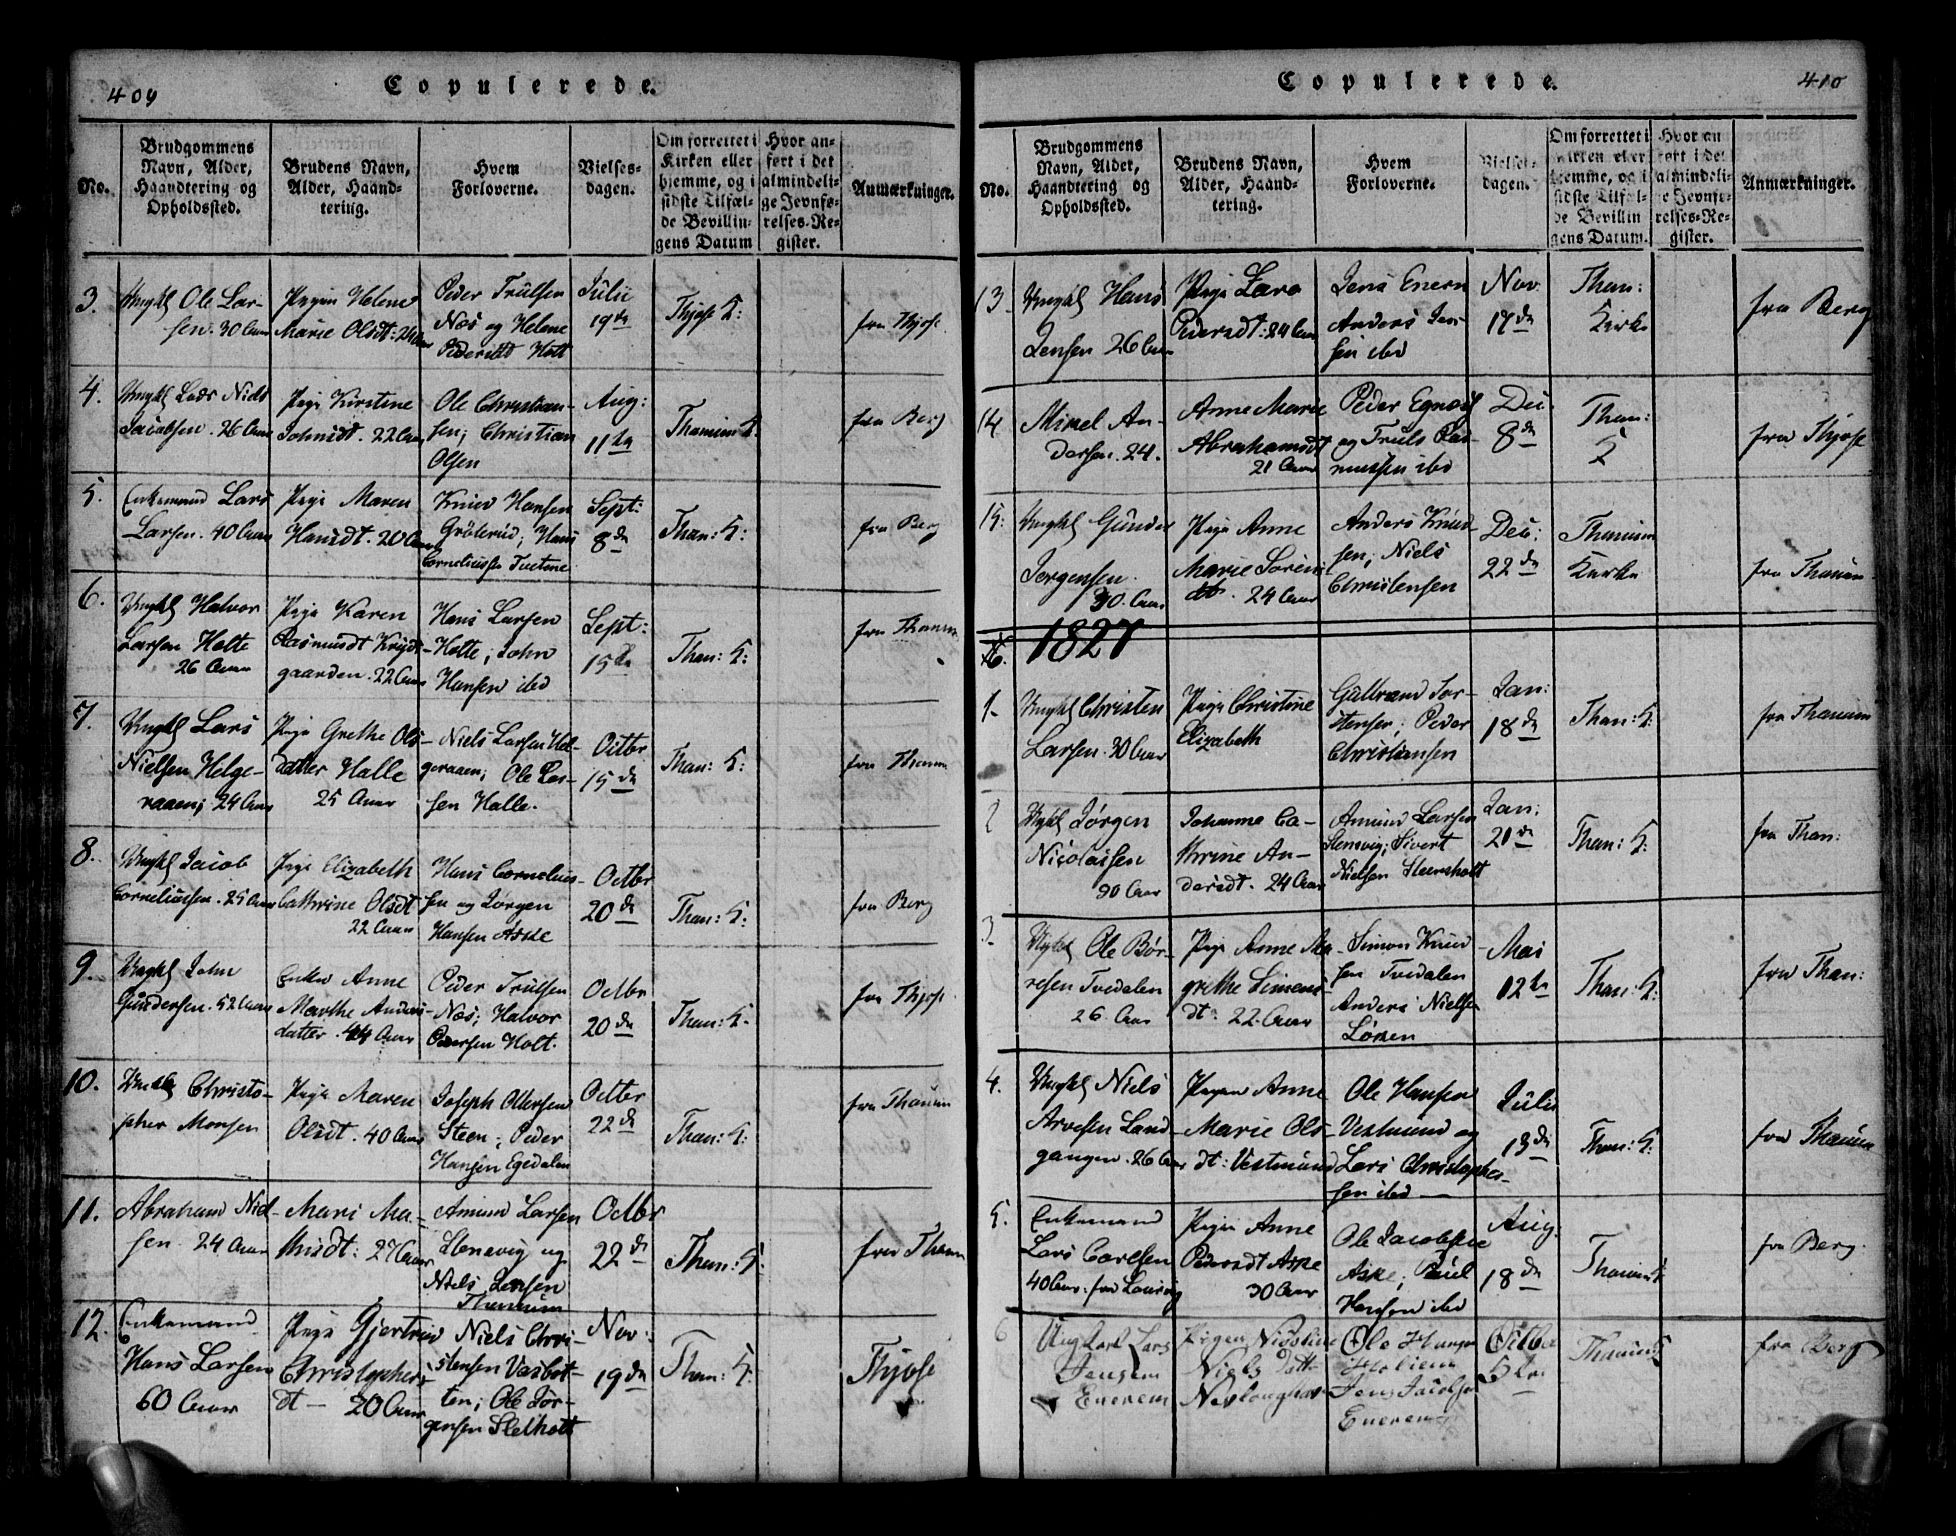 409
Copulerede.
No.
Brudgommens
Navn, Alder,
Haandtering og
Opholdssted.
Brudens Navn,
Alder, Haand-
tering.
Hvem
Forloverne.
Vielses-
dagen.
Om forrettet i
Kirken eller
hjemme, og i
sidste Tilfæl-
de Bevillin-
gens Datum
Hvor an-
ført i det
almindeli-
ge Jevnfø-
relses-Re-
gister.
Anmærkninger.
3.
Ungkl Ole Lar-
sen. 30 Aar
Pigen Helene
Marie Olsdt: 24 Aar
Peder Trulsen
Næs og Helene
Pedersdt Holt
Julii
19de
Thjøse K:
fra Thjøse
4.
Ungkl Lars Niels
Jacobsen. 26 Aar
Pige Kirstine
22 Aar
Ole Christian-
sen; Christian
Olsen
Aug:
11te
Thanum K
fra Berg
5.
Enkemand Lars
Larsen. 40 Aar
Pige Maren
Hansdt. 20 Aar
Knud Hansen
Grøterud; Hans
Sept:
8de
Than: K:
fra Berg
6.
Ungkl Halvor
Larsen Holte
26 Aar
Pige Karen
Rasmusdt Krydt-
gaarden. 22 Aar
Hans Larsen
Holte; John
Hansen ibd
Sept:
15de
Than: K:
fra Thanum
7.
Ungkl Lars
Nielsen Helge-
raaen; 24 Aar
Pige Grethe Ols-
datter Halle
25 Aar
Niels Larsen Hel-
geraaen; Ole Lar-
sen Halle.
Octbr
15de
Than: K:
fra Thanum
8.
Ungkl Jacob
Corneliussen. 25 Aar
Pige Elizabeth
Cathrine Olsdt
22 Aar
Hans Cornelius-
sen og Jørgen
Hansen Aske
Octbr
20de
Than: K:
fra Berg
9.
Ungkl John
Gundersen. 52 Aar
Enken Anne
Marthe Anders-
datter. 44 Aar
Peder Trulsen
Næs; Halvor
Pedersen Holt.
Octbr
20de
Than: K.
fra Thjøse
10.
Ungkl Christo-
pher Monsen
Pige Maren
Olsdt. 40 Aar
Joseph Ottersen
Steen; Peder
Hansen Egedalen
Octbr
22de
Than: K:
fra Thanum
11.
Abraham Niel-
sen. 24 Aar
Mari Ma-
thisdt: 27 Aar
Amund Larsen
Stensvig og
Niels Jensen
Thanum
Octbr
22de
Than: K:
fra Thanum
12.
Enkemand
Hans Larsen
60 Aar
Pige Gjertrud
Christophers
dt - 20 Aar
Niels Chri-
stensen Vasbot-
ten; Ole Jør-
gensen Sletholt
Nov:
19de
Than: K:
Thjøse
410
Copulerede.
No.
Brudgommens
Navn, Alder,
Haandtering og
Opholdssted.
Brudens Navn,
Alder, Haand-
tering.
Hvem
Forloverne.
Vielses-
dagen.
Om forrettet i
Kirken eller
hjemme, og i
sidste Tilfæl-
de Bevillin
gens Datum.
Hvor an
ført i det
almindeli-
ge Jevnfø-
relses-Re-
gister.
Anmærkninger.
13.
Ungkl Hans
Jensen 26 Aar
Pige Lara
Pedersdt: 24 Aar
Jens Enern
Anders Jen-
sen ibd
Nov
17de
Than:
Kirke
fra Berg
14
Mikel An-
dersen. 24.
Anne Marie
Abrahamsdt
21 Aar
Peder
og Truls Ras-
mussen ibd
Dec
8de
Than:
K
fra Thjøse
15.
Ungkl Gunder
Jørgensen.
30. Aar
Pige Anne
Marie Sørens
dt. 24 Aar
Anders Knud-
sen; Niels
Christensen
Dec:
22de
Thanum
Kirke
fra Thanum
1827
1.
Ungkl Christen
Larsen. 30 Aar
Pige Christine
Elizabeth
Gulbrand Tor-
stensen; Peder
Christiansen
Jan:
18de
Than: K:
fra Thanum
2
Ungkl Jørgen
Nicolaisen
30 Aar
Johanne Ca-
thrine An-
dersdt. 24 Aar
Amund Larsen
Stensvig; Sivert
Nielsen Steensholt
Jan:
21de
Than: K:
fra Than:
3
Ungkl Ole Bør-
resen Tvedalen
26. Aar
Pige Anne Ma-
grethe Simens-
dt. 22. Aar
Simon Knud
sen Tvedalen
Anders Nielsen
Mai
12te
Than: K:
fra Than:
4.
Ungkl Niels
Arvesen Land-
gangen. 26 Aar
Pigen Anne
Marie Ols-
dt: Vestmund
Ole Hansen
Vestmund og
Lars Christophes-
sen ibd
Julii
13de
Than: K:
fra Thanum
5.
Enkemand
Lars Carlsen
40 Aar. fra Laurvig
Pige Anne
Pedersdt Aske
30 Aar
Ole Jacobsen
Aske; Poul
Hansen ibd
Aug.
18de
Thanum K
fra Berg.
6
Ungkarl Lars
Jensen
Enerem
Pigen
Niels Datt-
Ole Hansen
Jens Jacobsen
Enerem
Octbr
5te
Thanum K
fra Berg